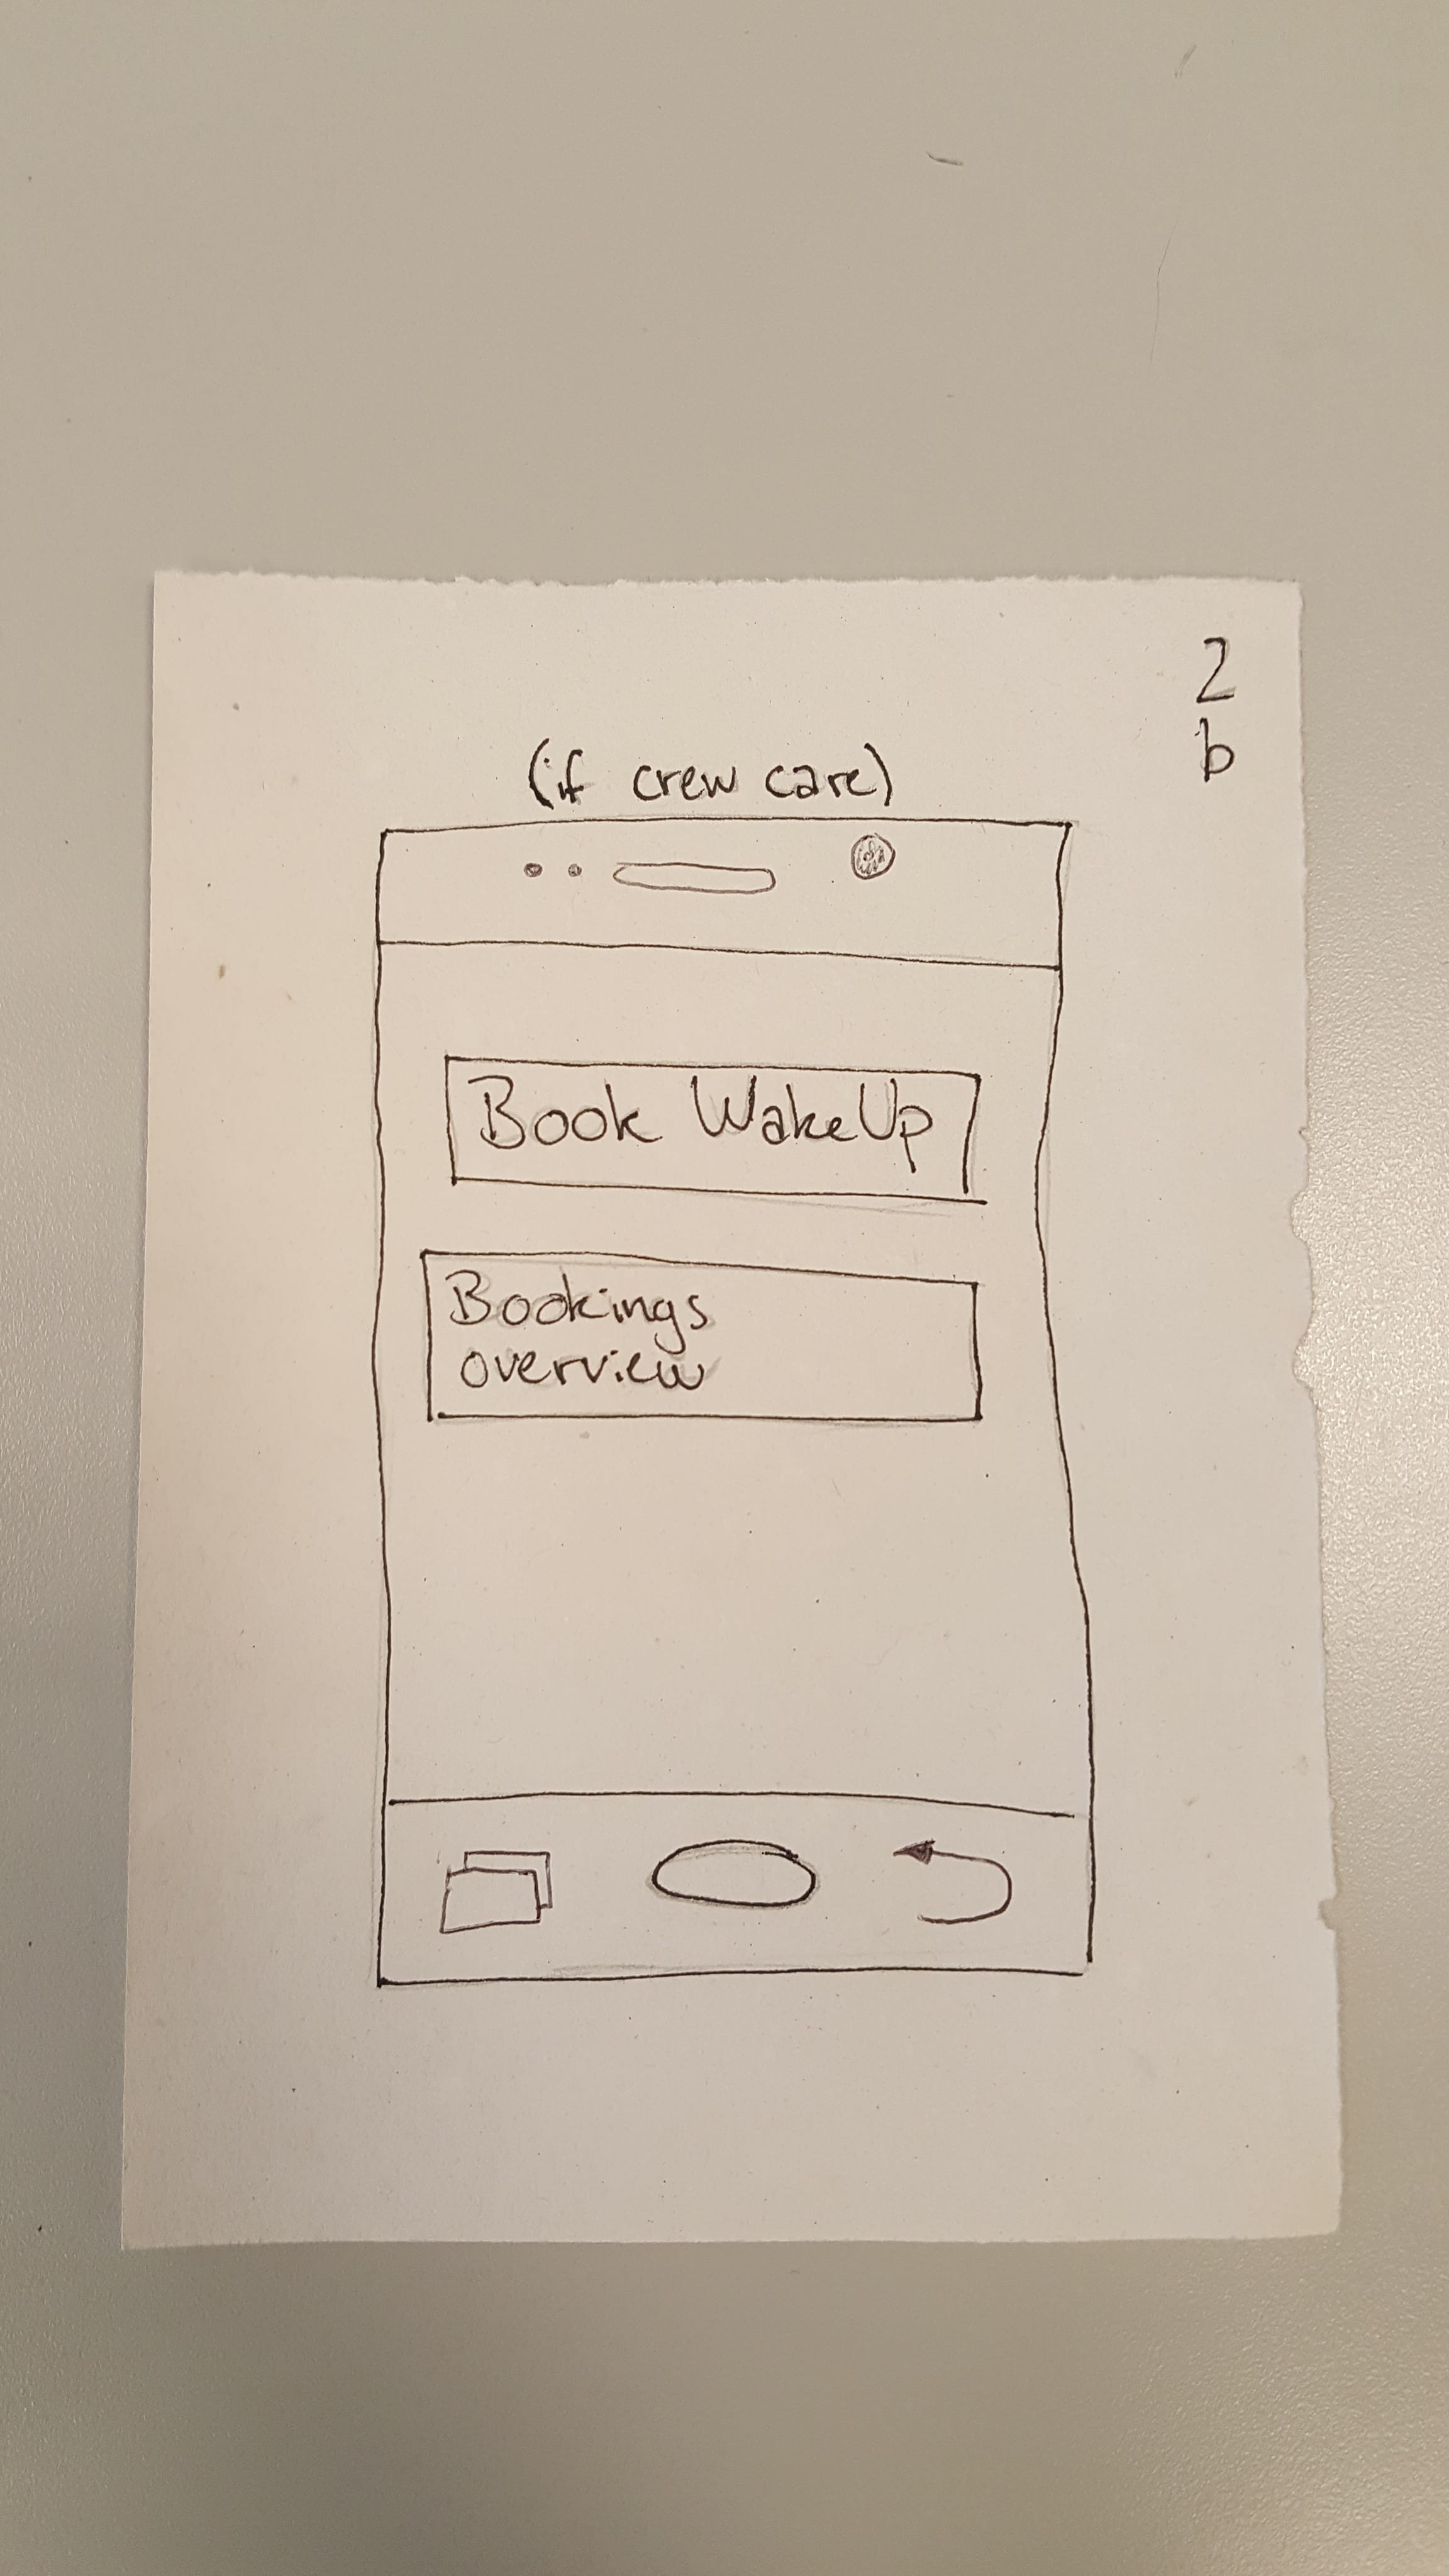 2
b
(if crew care)
Book WakeUp
Bookings
overview